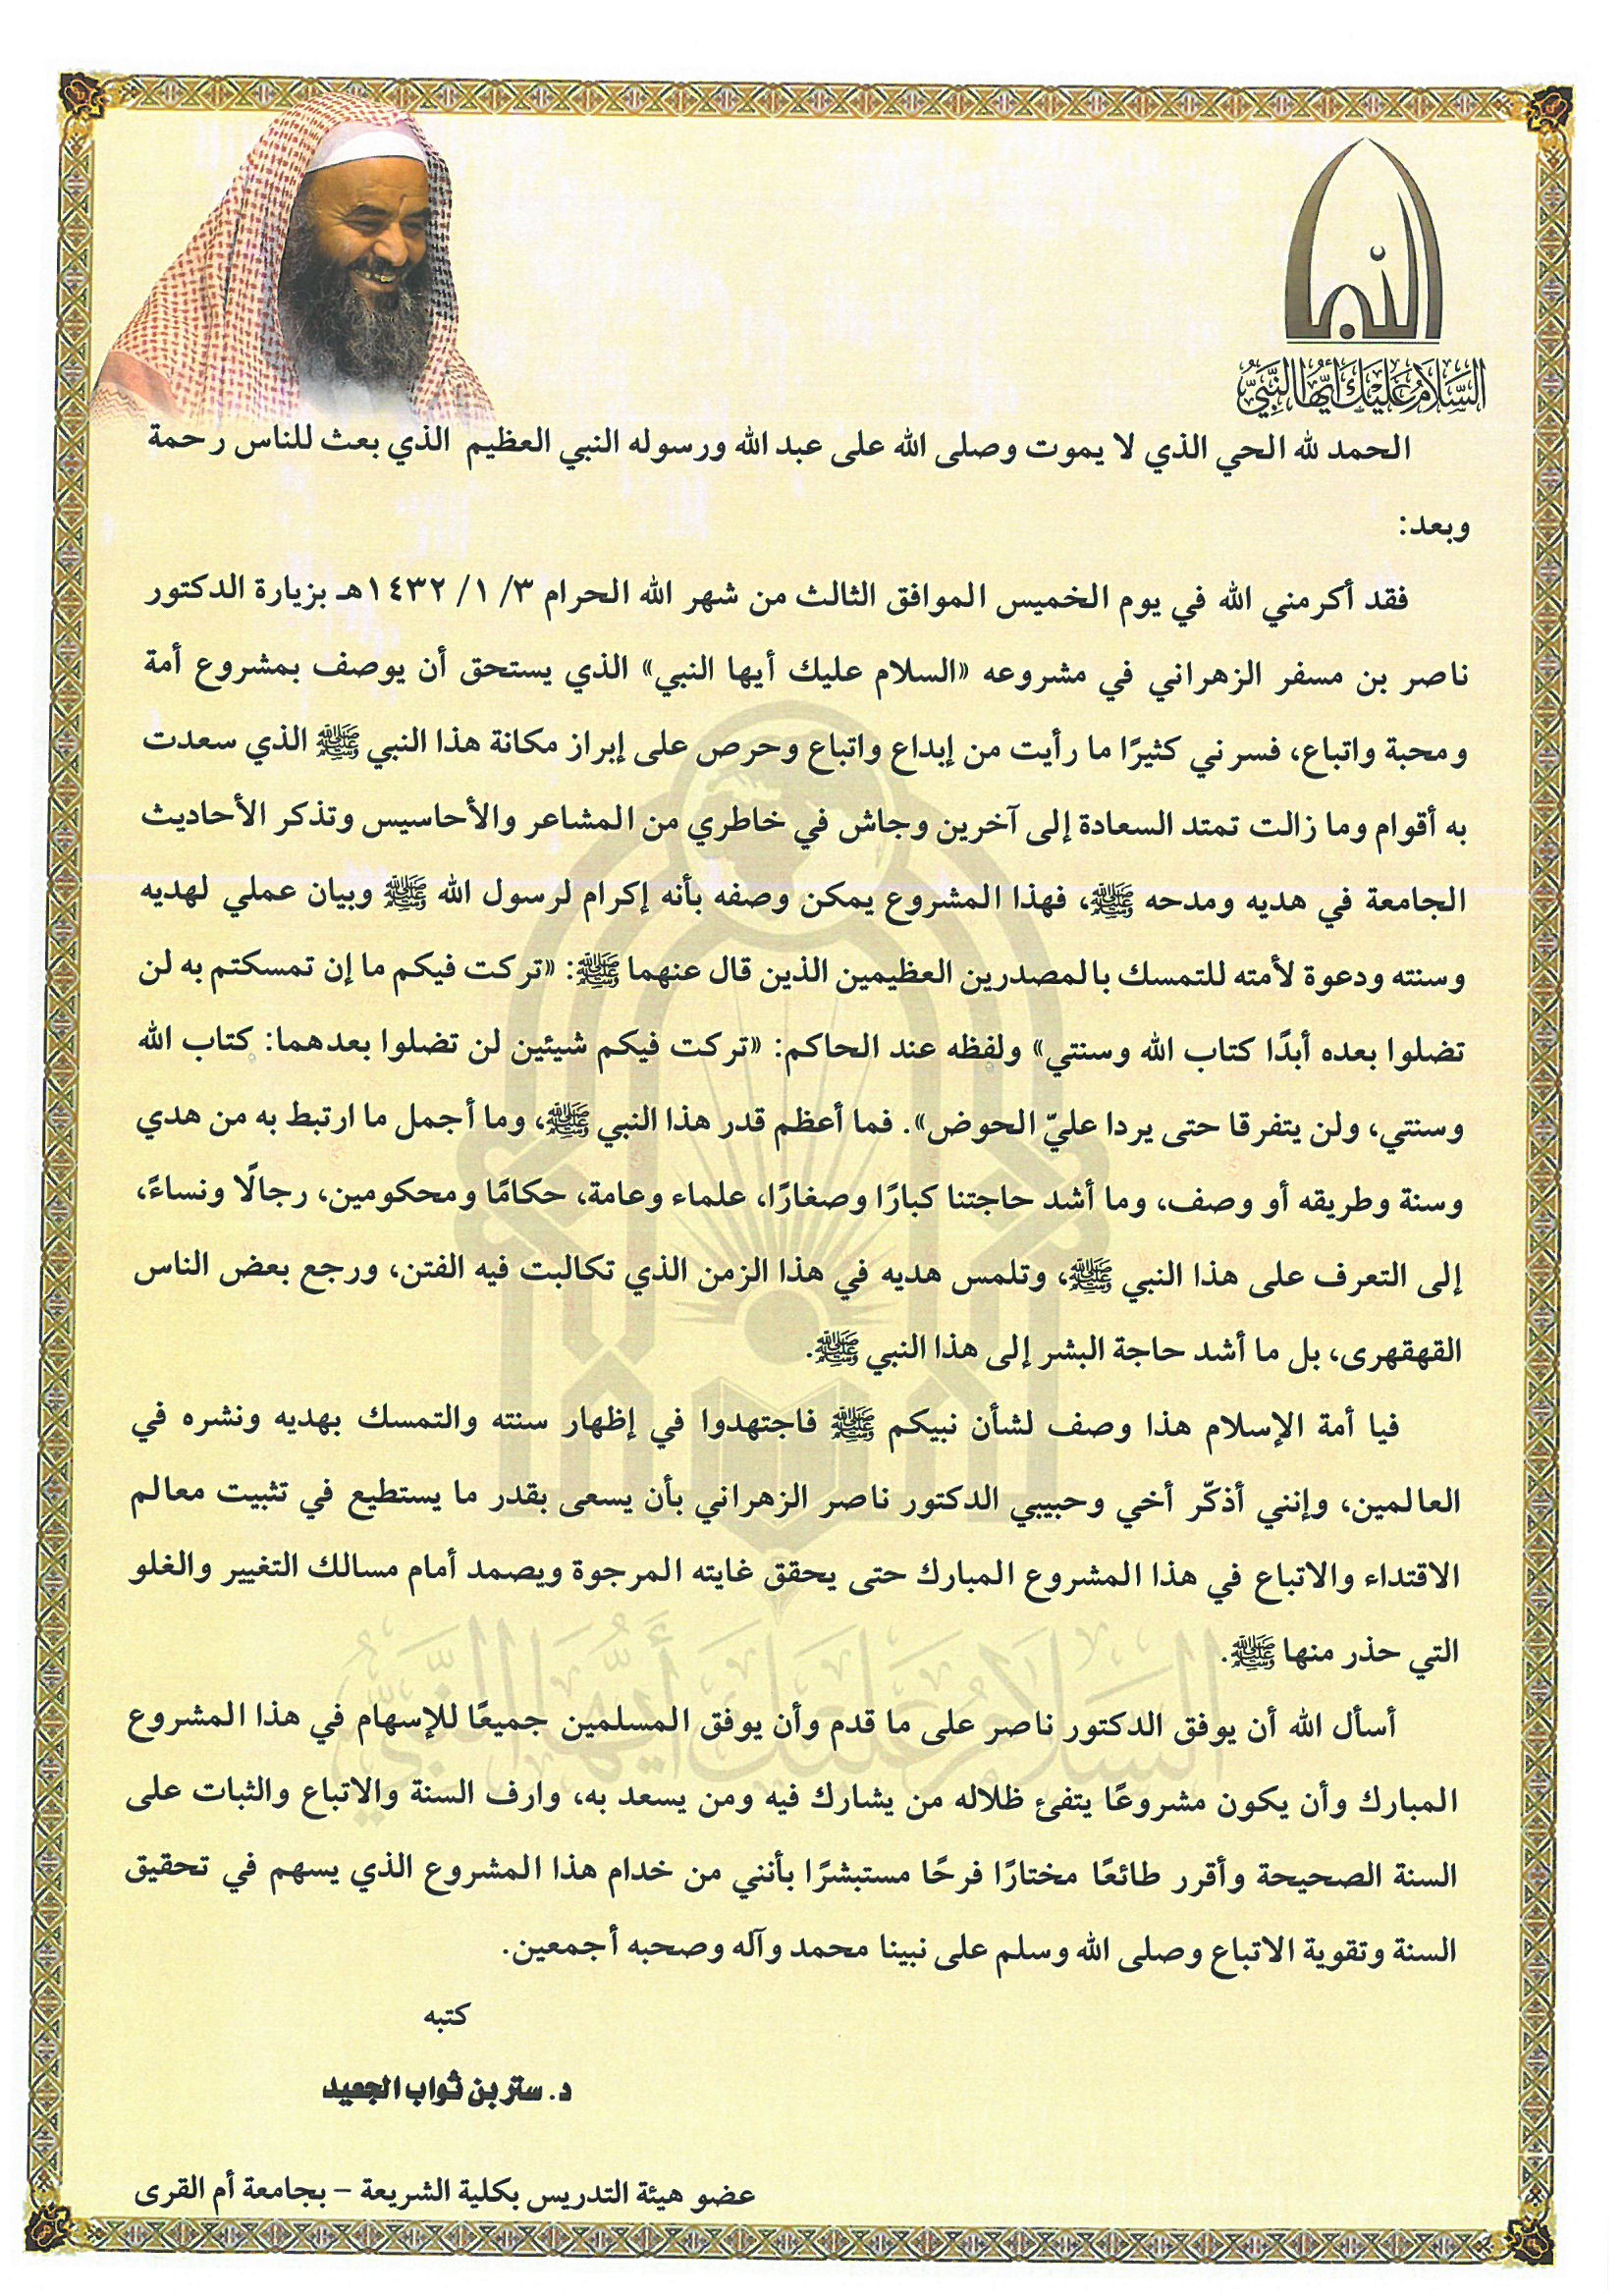 النبأ
السَّلَامُ عَلَيْكَ أَيُّهَا النَّبِيُّ
الحمد لله الحي الذي لا يموت وصلى الله على عبد الله ورسوله النبي العظيم الذي بعث للناس رحمة
وبعد:
فقد أكرمني الله في يوم الخميس الموافق الثالث من شهر الله الحرام ٣/ ١/ ١٤٣٢هـ بزيارة الدكتور
ناصر بن مسفر الزهراني في مشروعه «السلام عليك أيها النبي» الذي يستحق أن يوصف بمشروع أمة
ومحبة واتباع، فسرني كثيرًا ما رأيت من إبداع واتباع وحرص على إبراز مكانة هذا النبي ﷺ الذي سعدت
به أقوام وما زالت تمتد السعادة إلى آخرين وجاش في خاطري من المشاعر والأحاسيس وتذكر الأحاديث
الجامعة في هديه ومدحه ﷺ، فهذا المشروع يمكن وصفه بأنه إكرام لرسول الله ﷺ وبيان عملي لهديه
وسنته ودعوة لأمته للتمسك بالمصدرين العظيمين الذين قال عنهما ﷺ: «تركت فيكم ما إن تمسكتم به لن
تضلوا بعده أبدًا كتاب الله وسنتي» ولفظه عند الحاكم: «تركت فيكم شيئين لن تضلوا بعدهما: كتاب الله
وسنتي، ولن يتفرقا حتى يردا عليّ الحوض». فما أعظم قدر هذا النبي ﷺ، وما أجمل ما ارتبط به من هدي
وسنة وطريقه أو وصف، وما أشد حاجتنا كبارًا وصغارًا، علماء وعامة، حكامًا ومحكومين، رجالًا ونساءً،
إلى التعرف على هذا النبي ﷺ، وتلمس هديه في هذا الزمن الذي تكالبت فيه الفتن، ورجع بعض الناس
القهقهرى، بل ما أشد حاجة البشر إلى هذا النبي ﷺ.
فيا أمة الإسلام هذا وصف لشأن نبيكم ﷺ فاجتهدوا في إظهار سنته والتمسك بهديه ونشره في
العالمين، وإنني أذكّر أخي وحبيبي الدكتور ناصر الزهراني بأن يسعى بقدر ما يستطيع في تثبيت معالم
الاقتداء والاتباع في هذا المشروع المبارك حتى يحقق غايته المرجوة ويصمد أمام مسالك التغيير والغلو
التي حذر منها ﷺ.
أسأل الله أن يوفق الدكتور ناصر على ما قدم وأن يوفق المسلمين جميعًا للإسهام في هذا المشروع
المبارك وأن يكون مشروعًا يتفئ ظلاله من يشارك فيه ومن يسعد به، وارف السنة والاتباع والثبات على
السنة الصحيحة وأقرر طائعًا مختارًا فرحًا مستبشرًا بأنني من خدام هذا المشروع الذي يسهم في تحقيق
السنة وتقوية الاتباع وصلى الله وسلم على نبينا محمد وآله وصحبه أجمعين.
كتبه
د. ستر بن ثواب الجعيد
عضو هيئة التدريس بكلية الشريعة – بجامعة أم القرى